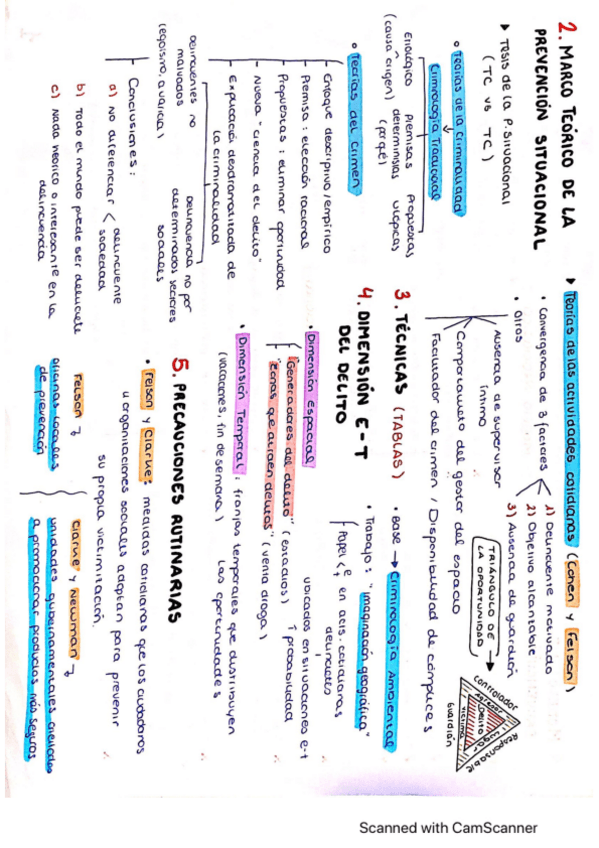 2. MARCO TEÓRICO DE LA
PREVENCIÓN SITUACIONAL
▸ Tesis de la P. Situacional
(TC vs TC)
◦ Teorías de la Criminalidad
Criminología Tradicional
Etiológico
(causa, origen)
Premisas
deterministas
(porqué)
Propuestas
utópicas
◦ Teorías del Crimen
Enfoque descriptivo/empírico
Premisa: elección racional
Propuestas: eliminar oportunidad
Nueva "ciencia del delito"
Explicación desdramatizada de
la criminalidad
Delincuentes no
malvados
(egoísmo, avaricia)
Delincuencia no por
determinados sectores
sociales
Conclusiones:
a) No diferenciar < delincuente
sociedad
b) Todo el mundo puede ser delincuente
c) Nada heroico o interesante en la
delincuencia
▸ Teorías de las actividades cotidianas (Cohen y Felson)
• Convergencia de 3 factores
1) Delincuente motivado
2) Objetivo alcanzable
3) Ausencia de guardián
TRIÁNGULO DE
LA OPORTUNIDAD →
Controlador
DELITO
LUGAR
VÍCTIMA
Responsable
Guardián
• Otros
Ausencia de supervisor
íntimo
Comportamiento del gestor del espacio
Facilitador del crimen / Disponibilidad de cómplices
3. TÉCNICAS (TABLAS)
4. DIMENSIÓN E-T
DEL DELITO
• Base → Criminología Ambiental
• Trabajo: "imaginación geográfica"
Papel < E
T en acts. cotidianas
delincuentes
ubicados en situaciones e-t
• Dimensión Espacial
"Generadores del delito" (estadios) ↑ probabilidad
"Zonas que atraen delitos" (venta droga)
• Dimensión Temporal: franjas temporales que distribuyen
(vacaciones, fin de semana) las oportunidades
5. PRECAUCIONES RUTINARIAS
• Felson y Clarke: medidas cotidianas que los ciudadanos
u organizaciones sociales adoptan para prevenir
su propia victimización.
Felson →
oficinas locales
de prevención
Clarke y Newman →
unidades gubernamentales dedicadas
a promocionar productos más seguros
Scanned with CamScanner